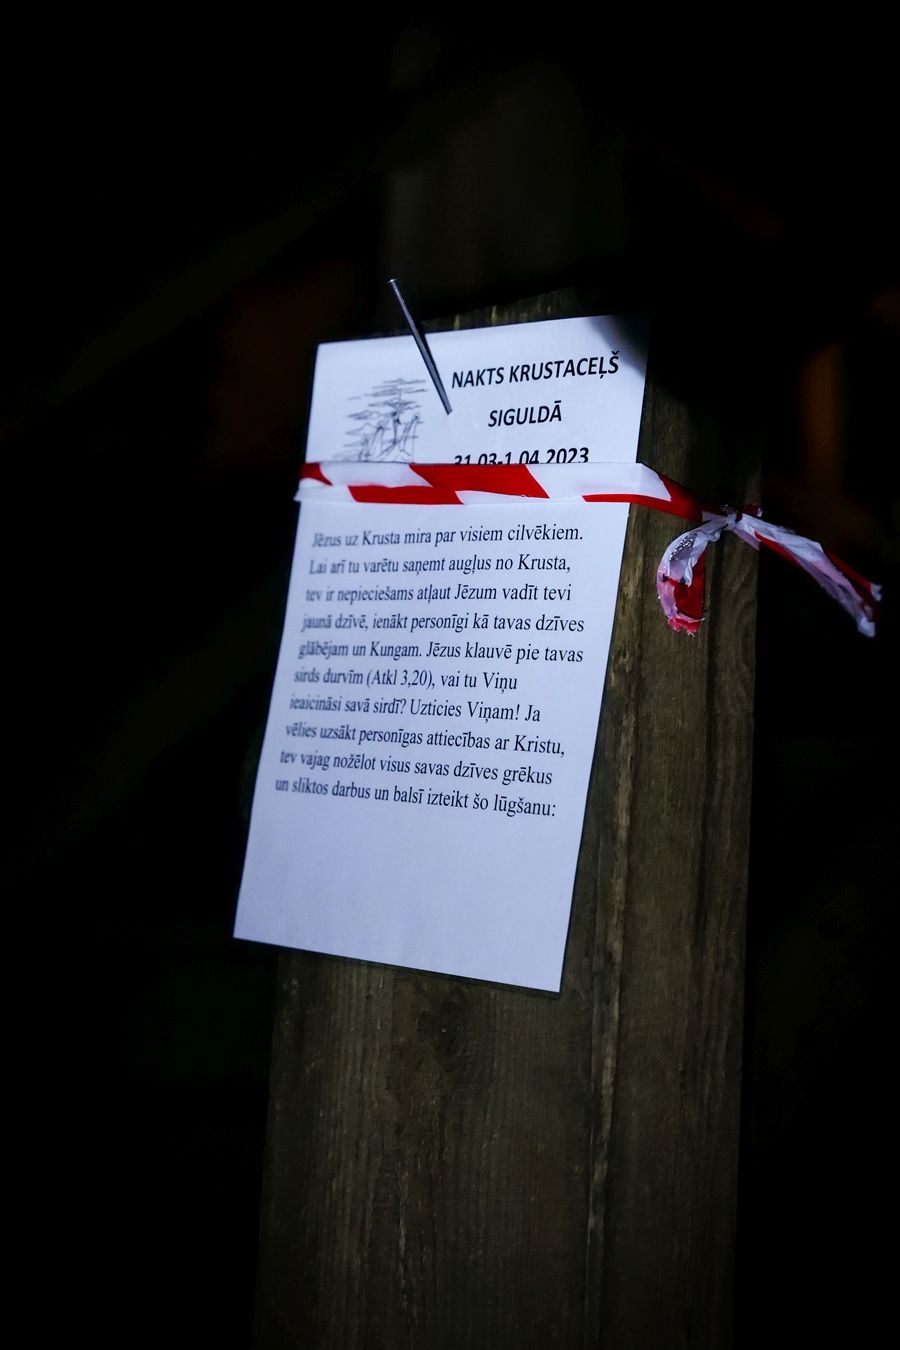 NAKTS KRUSTACEĻŠ
SIGULDĀ
31.03-1.04.2023
Jēzus uz Krusta mira par visiem cilvēkiem.
Lai arī tu varētu saņemt augļus no Krusta,
tev ir nepieciešams atļaut Jēzum vadīt tevi
jaunā dzīvē, ienākt personīgi kā tavas dzīves
glābējam un Kungam. Jēzus klauvē pie tavas
sirds durvīm (Atkl 3,20), vai tu Viņu
ieaicināsi savā sirdī? Uzticies Viņam! Ja
vēlies uzsākt personīgas attiecības ar Kristu,
tev vajag nožēlot visus savas dzīves grēkus
un sliktos darbus un balsī izteikt šo lūgšanu: